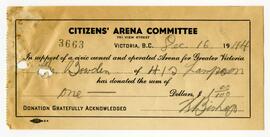 CITIZENS' ARENA COMMITTEE
751 VIEW STREET
3663 VICTORIA, B.C. Dec 16 1944
In support of a civic owned and operated Arena for Greater Victoria
Bowden of H10 Lampson
has donated the sum of
one Dollars, $ 1 00/100
DONATION GRATEFULLY ACKNOWLEDGED